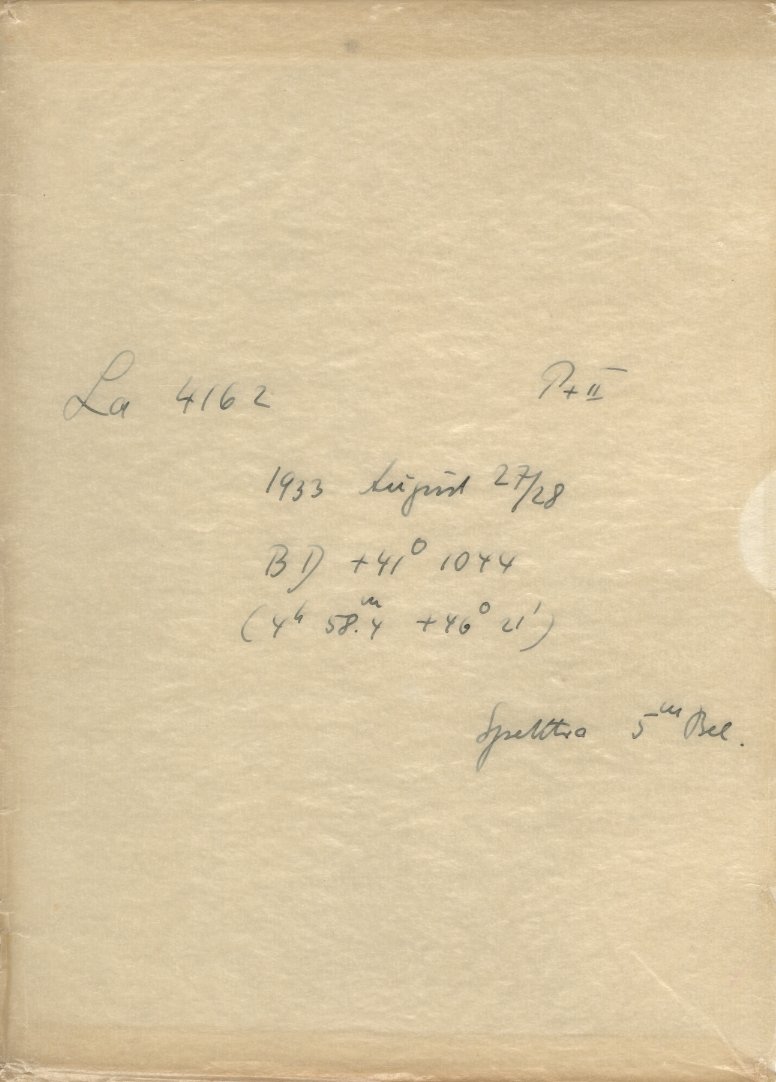 La 4162 P+II
1933 August 27/28
BD +41° 1044
(4ʰ 58.ᵐ4 +46° 21')
Spektra 5ᵐ Bel.